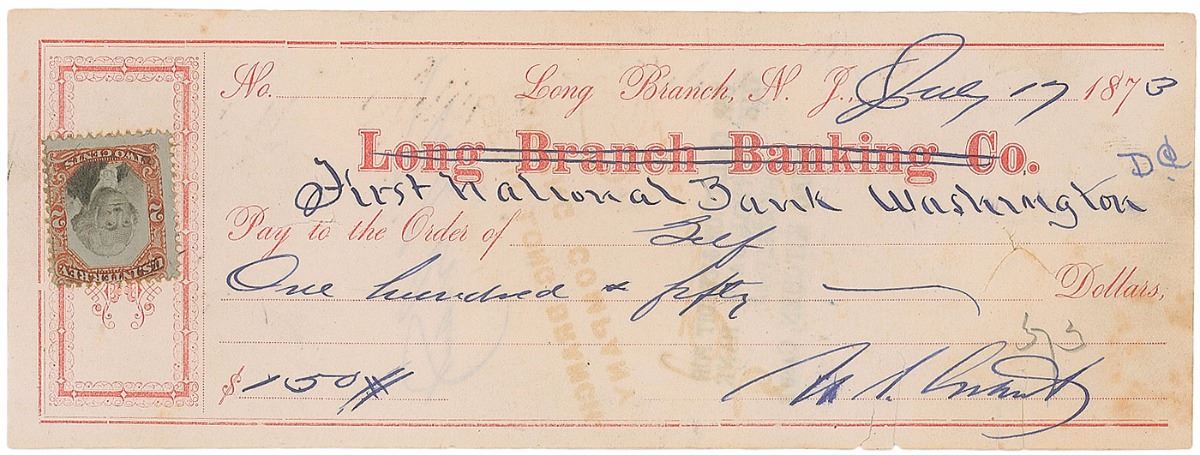 No. Long Branch, N. J., July 17 1873
Long Branch Banking Co.
D.C.
First National Bank Washington
Pay to the Order of Self
One hundred & fifty Dollars,
373
$ 150 U. S. Grant
TWO CENTS
2 2
U.S. INTER. REV.
COMPANY
LONG BRANCH